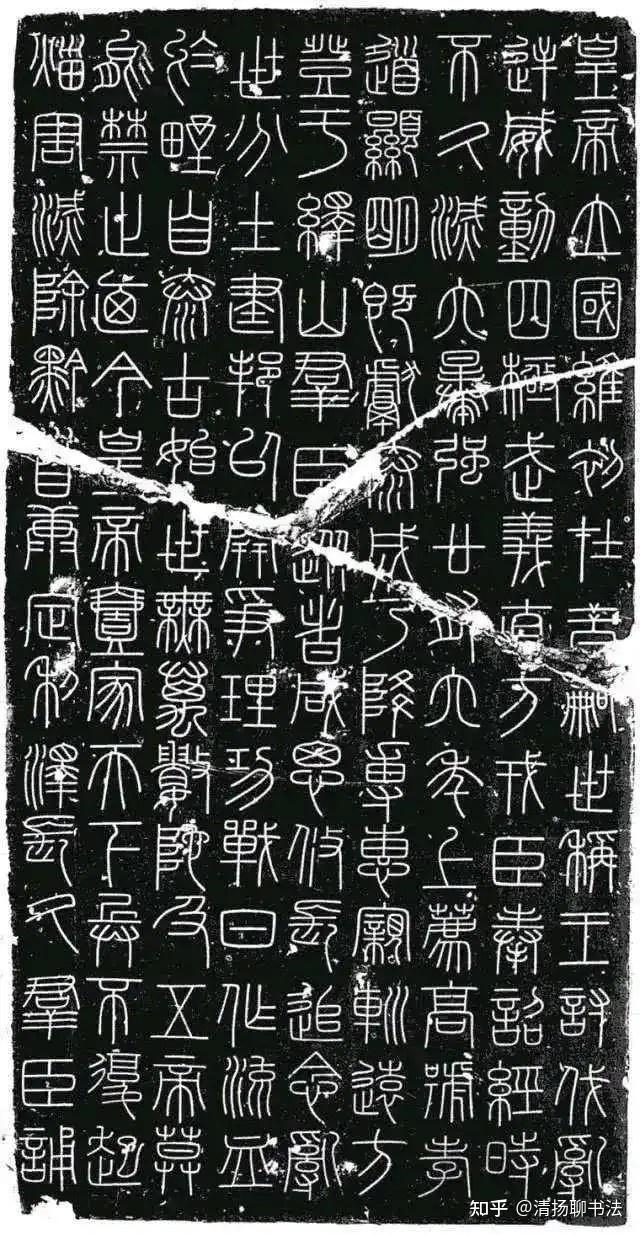 皇帝立國維初在昔嗣世稱王討伐亂
逆威動四極武義直方戎臣奉詔經時
不久滅六暴強廿有六年上薦高號孝
道顯明既獻泰成乃降專惠親巡遠方
登于繹山羣臣從者咸思攸長追念亂
世分土建邦以開爭理功戰日作流血
於野自泰古始世無萬數陀及五帝莫
能禁止迺今皇帝壹家天下兵不復起
災害滅除黔首康定利澤長久羣臣誦
知乎 @清扬聊书法